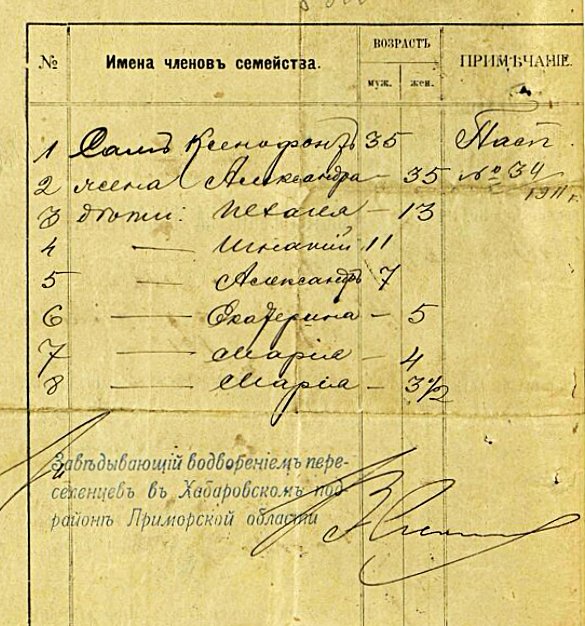 № Имена членовъ семейства. ВОЗРАСТЪ ПРИМѢЧАНІЕ.
муж. жен.
1 Самъ Ксенофонтъ 35 Пасп.
2 жена Александра — 35 № 34
1911 г.
3 дѣти: — 13
4 — Игнатій 11
5 — Александръ 7
6 — Екатерина — 5
7 — Марія — 4
8 — Марія — 3 1/2
Завѣдывающій водвореніемъ пере-
селенцевъ въ Хабаровскомъ под-
районѣ Приморской области